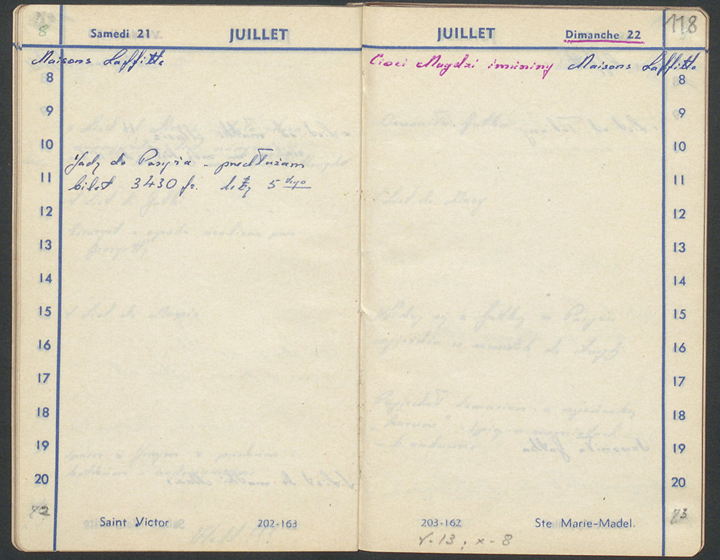 8
Samedi 21
JUILLET
Maisons Laffitte
8
9
10
Jadę do Paryża - przedłużam
11
bilet 3430 fr. leżę 5
12
13
14
15
16
17
18
19
20
42
Saint Victor
202-163
JUILLET
Dimanche 22
118
Cioci Magdzi imieniny Maisons Laffitte
8
9
10
11
12
13
14
15
16
17
18
19
20
43
203-162
Ste Marie-Madel.
V-13, X-8